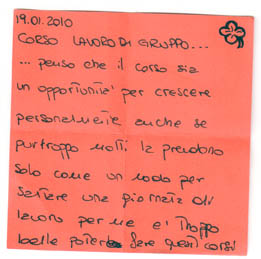 19.01.2010
CORSO LAVORO DI GRUPPO...
... penso che il corso sia
un opportunita' per crescere
personalmente anche se
purtroppo molti la prendono
solo come un modo per
saltare una giornata di
lavoro per me e' troppo
bello potere fare questi corsi